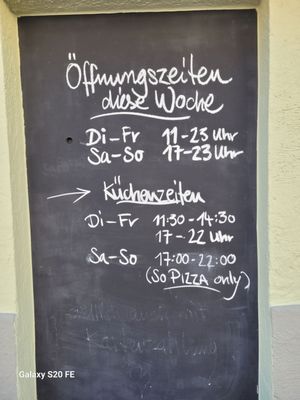 Öffnungszeiten
diese Woche
Di-Fr 11-23 Uhr
Sa-So 17-23 Uhr
Küchenzeiten
Di-Fr 11:30-14:30
17-22 Uhr
Sa-So 17:00-22:00
(So PIZZA only)
auch mit
Galaxy S20 FE